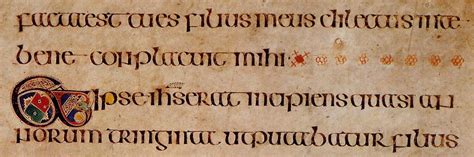 facta est tu es filius meus dilectus in te
bene conplacuit mihi
Et ipse ihs erat incipiens quasi an
norum triginta ut putabatur filius